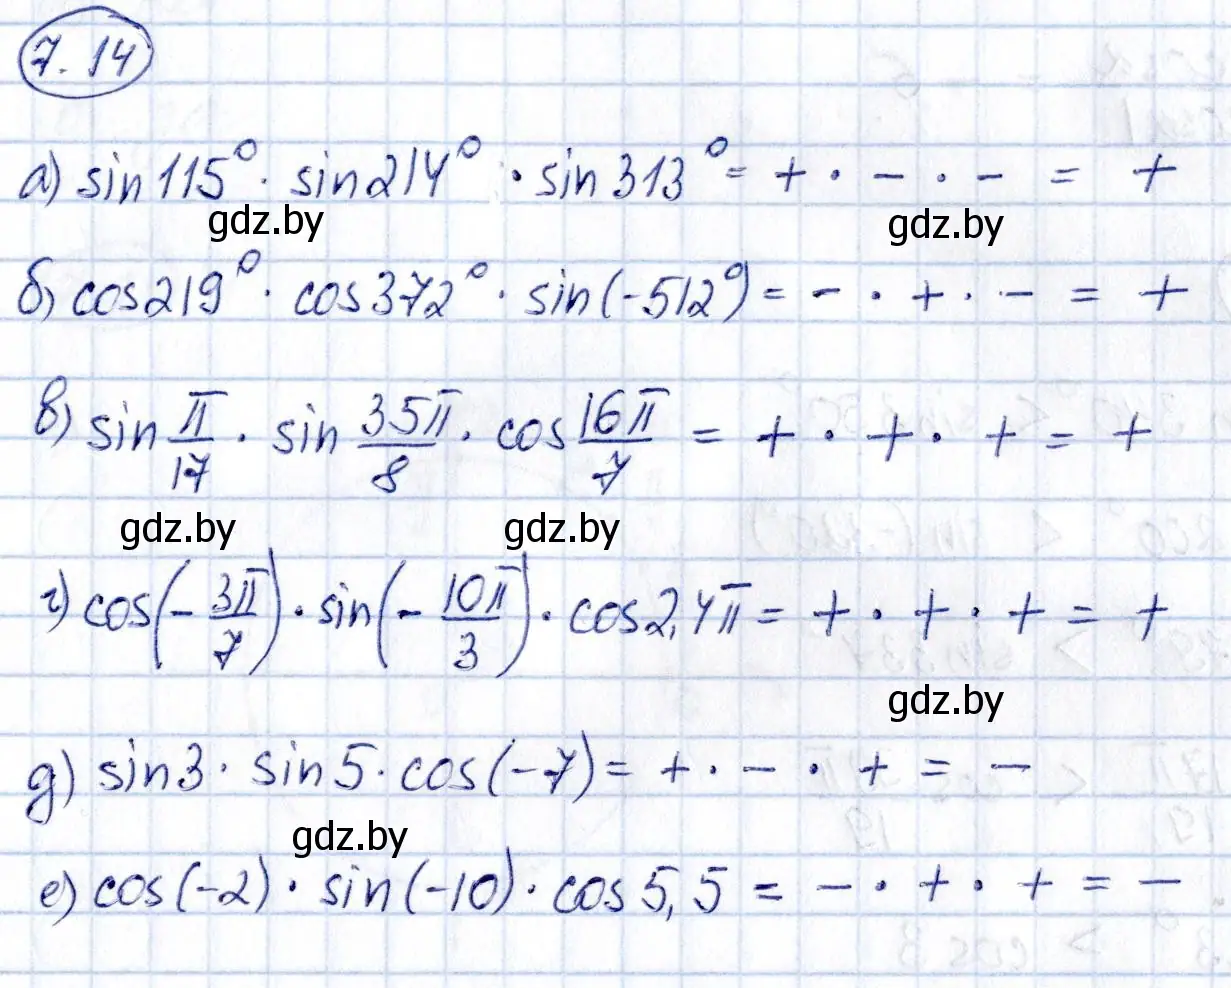 7.14
а) sin 115° · sin 214° · sin 313° = + · - · - = +
gdz.by gdz.by
б) cos 219° · cos 372° · sin(-512°) = - · + · - = +
в) sin π/17 · sin 35π/8 · cos 16π/7 = + · + · + = +
gdz.by gdz.by
г) cos(-3π/7) · sin(-10π/3) · cos 2,4π = + · + · + = +
gdz.by
д) sin 3 · sin 5 · cos(-7) = + · - · + = -
gdz.by
е) cos(-2) · sin(-10) · cos 5,5 = - · + · + = -